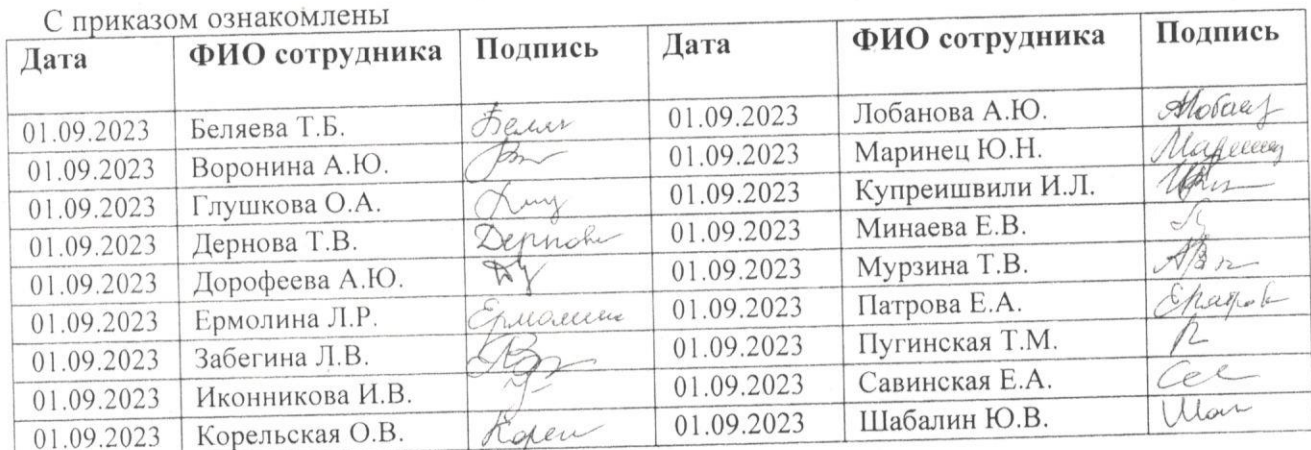 С приказом ознакомлены
Дата ФИО сотрудника Подпись Дата ФИО сотрудника Подпись
01.09.2023 Беляева Т.Б. 01.09.2023 Лобанова А.Ю.
01.09.2023 Воронина А.Ю. 01.09.2023 Маринец Ю.Н.
01.09.2023 Глушкова О.А. 01.09.2023 Купреишвили И.Л.
01.09.2023 Дернова Т.В. Дернова 01.09.2023 Минаева Е.В.
01.09.2023 Дорофеева А.Ю. 01.09.2023 Мурзина Т.В.
01.09.2023 Ермолина Л.Р. 01.09.2023 Патрова Е.А.
01.09.2023 Забегина Л.В. 01.09.2023 Пугинская Т.М.
01.09.2023 Иконникова И.В. 01.09.2023 Савинская Е.А.
01.09.2023 Корельская О.В. 01.09.2023 Шабалин Ю.В.